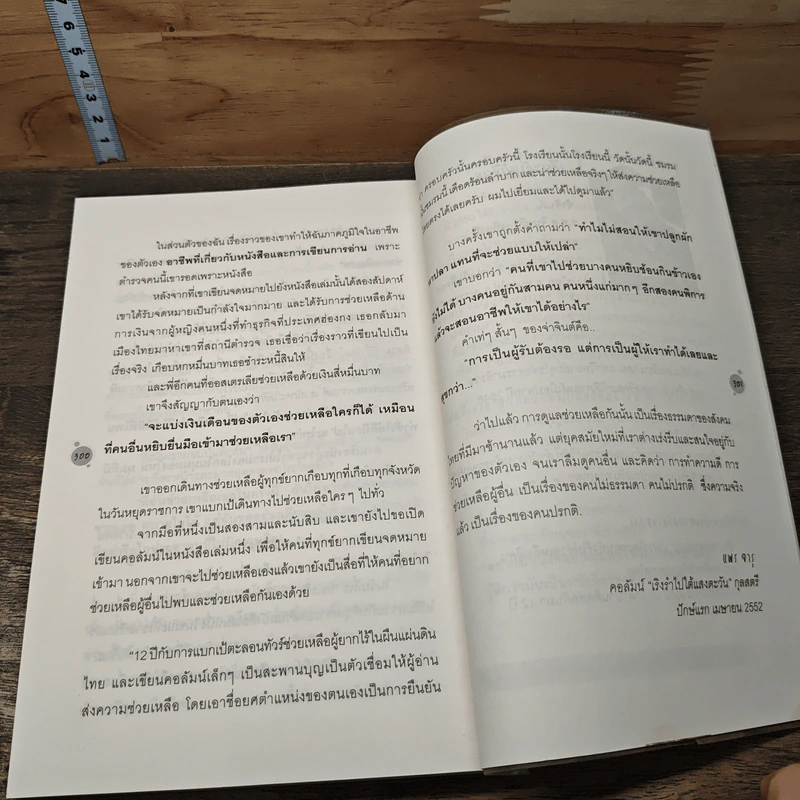 7
6
5
4
3
2
1
ในส่วนตัวของฉัน เรื่องราวของเขาทำให้ฉันภาคภูมิใจในอาชีพ
ของตัวเอง อาชีพที่เกี่ยวกับหนังสือและการเขียนการอ่าน เพราะ
ตำรวจคนนี้เขารอดเพราะหนังสือ
หลังจากที่เขาเขียนจดหมายไปยังหนังสือเล่มนั้นได้สองสัปดาห์
เขาได้รับจดหมายเป็นกำลังใจมากมาย และได้รับการช่วยเหลือด้าน
การเงินจากผู้หญิงคนหนึ่งที่ทำธุรกิจที่ประเทศฮ่องกง เธอกลับมา
เมืองไทยมาหาเขาที่สถานีตำรวจ เธอเชื่อว่าเรื่องราวที่เขียนไปเป็น
เรื่องจริง เกือบหกหมื่นบาทเธอชำระหนี้สินให้
และพี่อีกคนที่ออสเตรเลียช่วยเหลือด้วยเงินสี่หมื่นบาท
เขาจึงสัญญากับตนเองว่า
"จะแบ่งเงินเดือนของตัวเองช่วยเหลือใครก็ได้ เหมือน
ที่คนอื่นหยิบยื่นมือเข้ามาช่วยเหลือเรา"
300
เขาออกเดินทางช่วยเหลือผู้ทุกข์ยากเกือบทุกที่เกือบทุกจังหวัด
ในวันหยุดราชการ เขาแบกเป้เดินทางไปช่วยเหลือใคร ๆ ไปทั่ว
จากมือที่หนึ่งเป็นสองสามและนับสิบ และเขายังไปขอเปิด
เขียนคอลัมน์ในหนังสือเล่มหนึ่ง เพื่อให้คนที่ทุกข์ยากเขียนจดหมาย
เข้ามา นอกจากเขาจะไปช่วยเหลือเองแล้วเขายังเป็นสื่อที่ให้คนที่อยาก
ช่วยเหลือผู้อื่นไปพบและช่วยเหลือกันเองด้วย
"12 ปีกับการแบกเป้ตะลอนทัวร์ช่วยเหลือผู้ยากไร้ในผืนแผ่นดิน
ไทย และเขียนคอลัมน์เล็กๆ เป็นสะพานบุญเป็นตัวเชื่อมให้ผู้อ่าน
ส่งความช่วยเหลือ โดยเอาชื่อยศตำแหน่งของตนเองเป็นการยืนยัน
ครอบครัวนั้นครอบครัวนี้ โรงเรียนนั้นโรงเรียนนี้ วัดนั้นวัดนี้ ชมรม
ชมรมนี้ เดือดร้อนลำบาก และน่าช่วยเหลือจริงๆ ให้ส่งความช่วยเหลือ
ตรงได้เลยครับ ผมไปเยี่ยมและได้ไปดูมาแล้ว"
บางครั้งเขาถูกตั้งคำถามว่า "ทำไมไม่สอนให้เขาปลูกผัก
หาปลา แทนที่จะช่วยแบบให้เปล่า"
เขาบอกว่า "คนที่เขาไปช่วยบางคนหยิบช้อนกินข้าวเอง
ยังไม่ได้ บางคนอยู่กันสามคน คนหนึ่งแก่มากๆ อีกสองคนพิการ
แล้วจะสอนอาชีพให้เขาได้อย่างไร"
คำเท่ๆ สั้นๆ ของจ่าจินต์คือ..
"การเป็นผู้รับต้องรอ แต่การเป็นผู้ให้เราทำได้เลยและ
สุขกว่า..."
301
ว่าไปแล้ว การดูแลช่วยเหลือกันนั้น เป็นเรื่องธรรมดาของสังคม
ไทยที่มีมาช้านานแล้ว แต่ยุคสมัยใหม่ที่เราต่างเร่งรีบและสนใจอยู่กับ
ปัญหาของตัวเอง จนเราลืมดูคนอื่น และคิดว่า การทำความดี การ
ช่วยเหลือผู้อื่น เป็นเรื่องของคนไม่ธรรมดา คนไม่ปรกติ ซึ่งความจริง
แล้ว เป็นเรื่องของคนปรกติ.
แพร จารุ
คอลัมน์ "เริงรำไปใต้แสงตะวัน" กุลสตรี
ปักษ์แรก เมษายน 2552